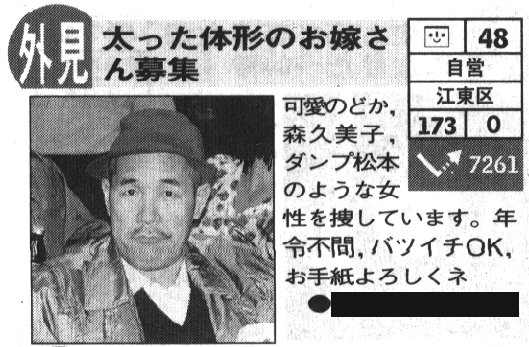 外見
太った体形のお嫁さ
ん募集
48
自営
江東区
173 0
7261
可愛のどか，
森久美子，
ダンプ松本
のような女
性を捜しています。年
令不問，バツイチOK，
お手紙よろしくネ